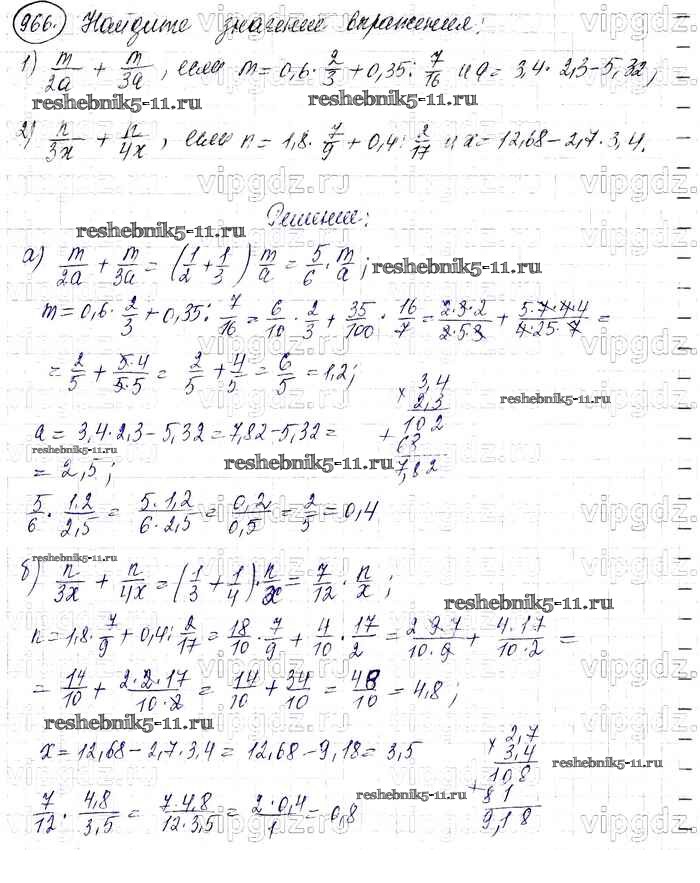 966. Найдите значение выражения:
1) m/2a + m/3a, если m = 0,6 · 2/3 + 0,35 : 7/16 и a = 3,4 · 2,3 − 5,32;
reshebnik5-11.ru reshebnik5-11.ru
2) n/3x + n/4x, если n = 1,8 · 7/9 + 0,4 : 2/17 и x = 12,68 − 2,7 · 3,4.
Решение:
reshebnik5-11.ru
а) m/2a + m/3a = (1/2 + 1/3) m/a = 5/6 · m/a;
reshebnik5-11.ru
m = 0,6 · 2/3 + 0,35 : 7/16 = 6/10 · 2/3 + 35/100 · 16/7 = 2·3·2/2·5·3 + 5·7·4·4/4·25·7 =
= 2/5 + 5·4/5·5 = 2/5 + 4/5 = 6/5 = 1,2;
× 3,4
2,3
102
+ 68
7,82
reshebnik5-11.ru
a = 3,4 · 2,3 − 5,32 = 7,82 − 5,32 =
reshebnik5-11.ru reshebnik5-11.ru
= 2,5;
5/6 · 1,2/2,5 = 5·1,2/6·2,5 = 0,2/0,5 = 2/5 = 0,4
reshebnik5-11.ru
б) n/3x + n/4x = (1/3 + 1/4) · n/x = 7/12 · n/x;
reshebnik5-11.ru
n = 1,8 · 7/9 + 0,4 : 2/17 = 18/10 · 7/9 + 4/10 · 17/2 = 2·9·7/10·9 + 4·17/10·2 =
= 14/10 + 2·2·17/10·2 = 14/10 + 34/10 = 48/10 = 4,8;
reshebnik5-11.ru
x = 12,68 − 2,7 · 3,4 = 12,68 − 9,18 = 3,5
× 2,7
3,4
108
+ 81
9,18
reshebnik5-11.ru
reshebnik5-11.ru
7/12 · 4,8/3,5 = 7·4,8/12·3,5 = 2·0,4/1 = 0,8
vipgdz.ru